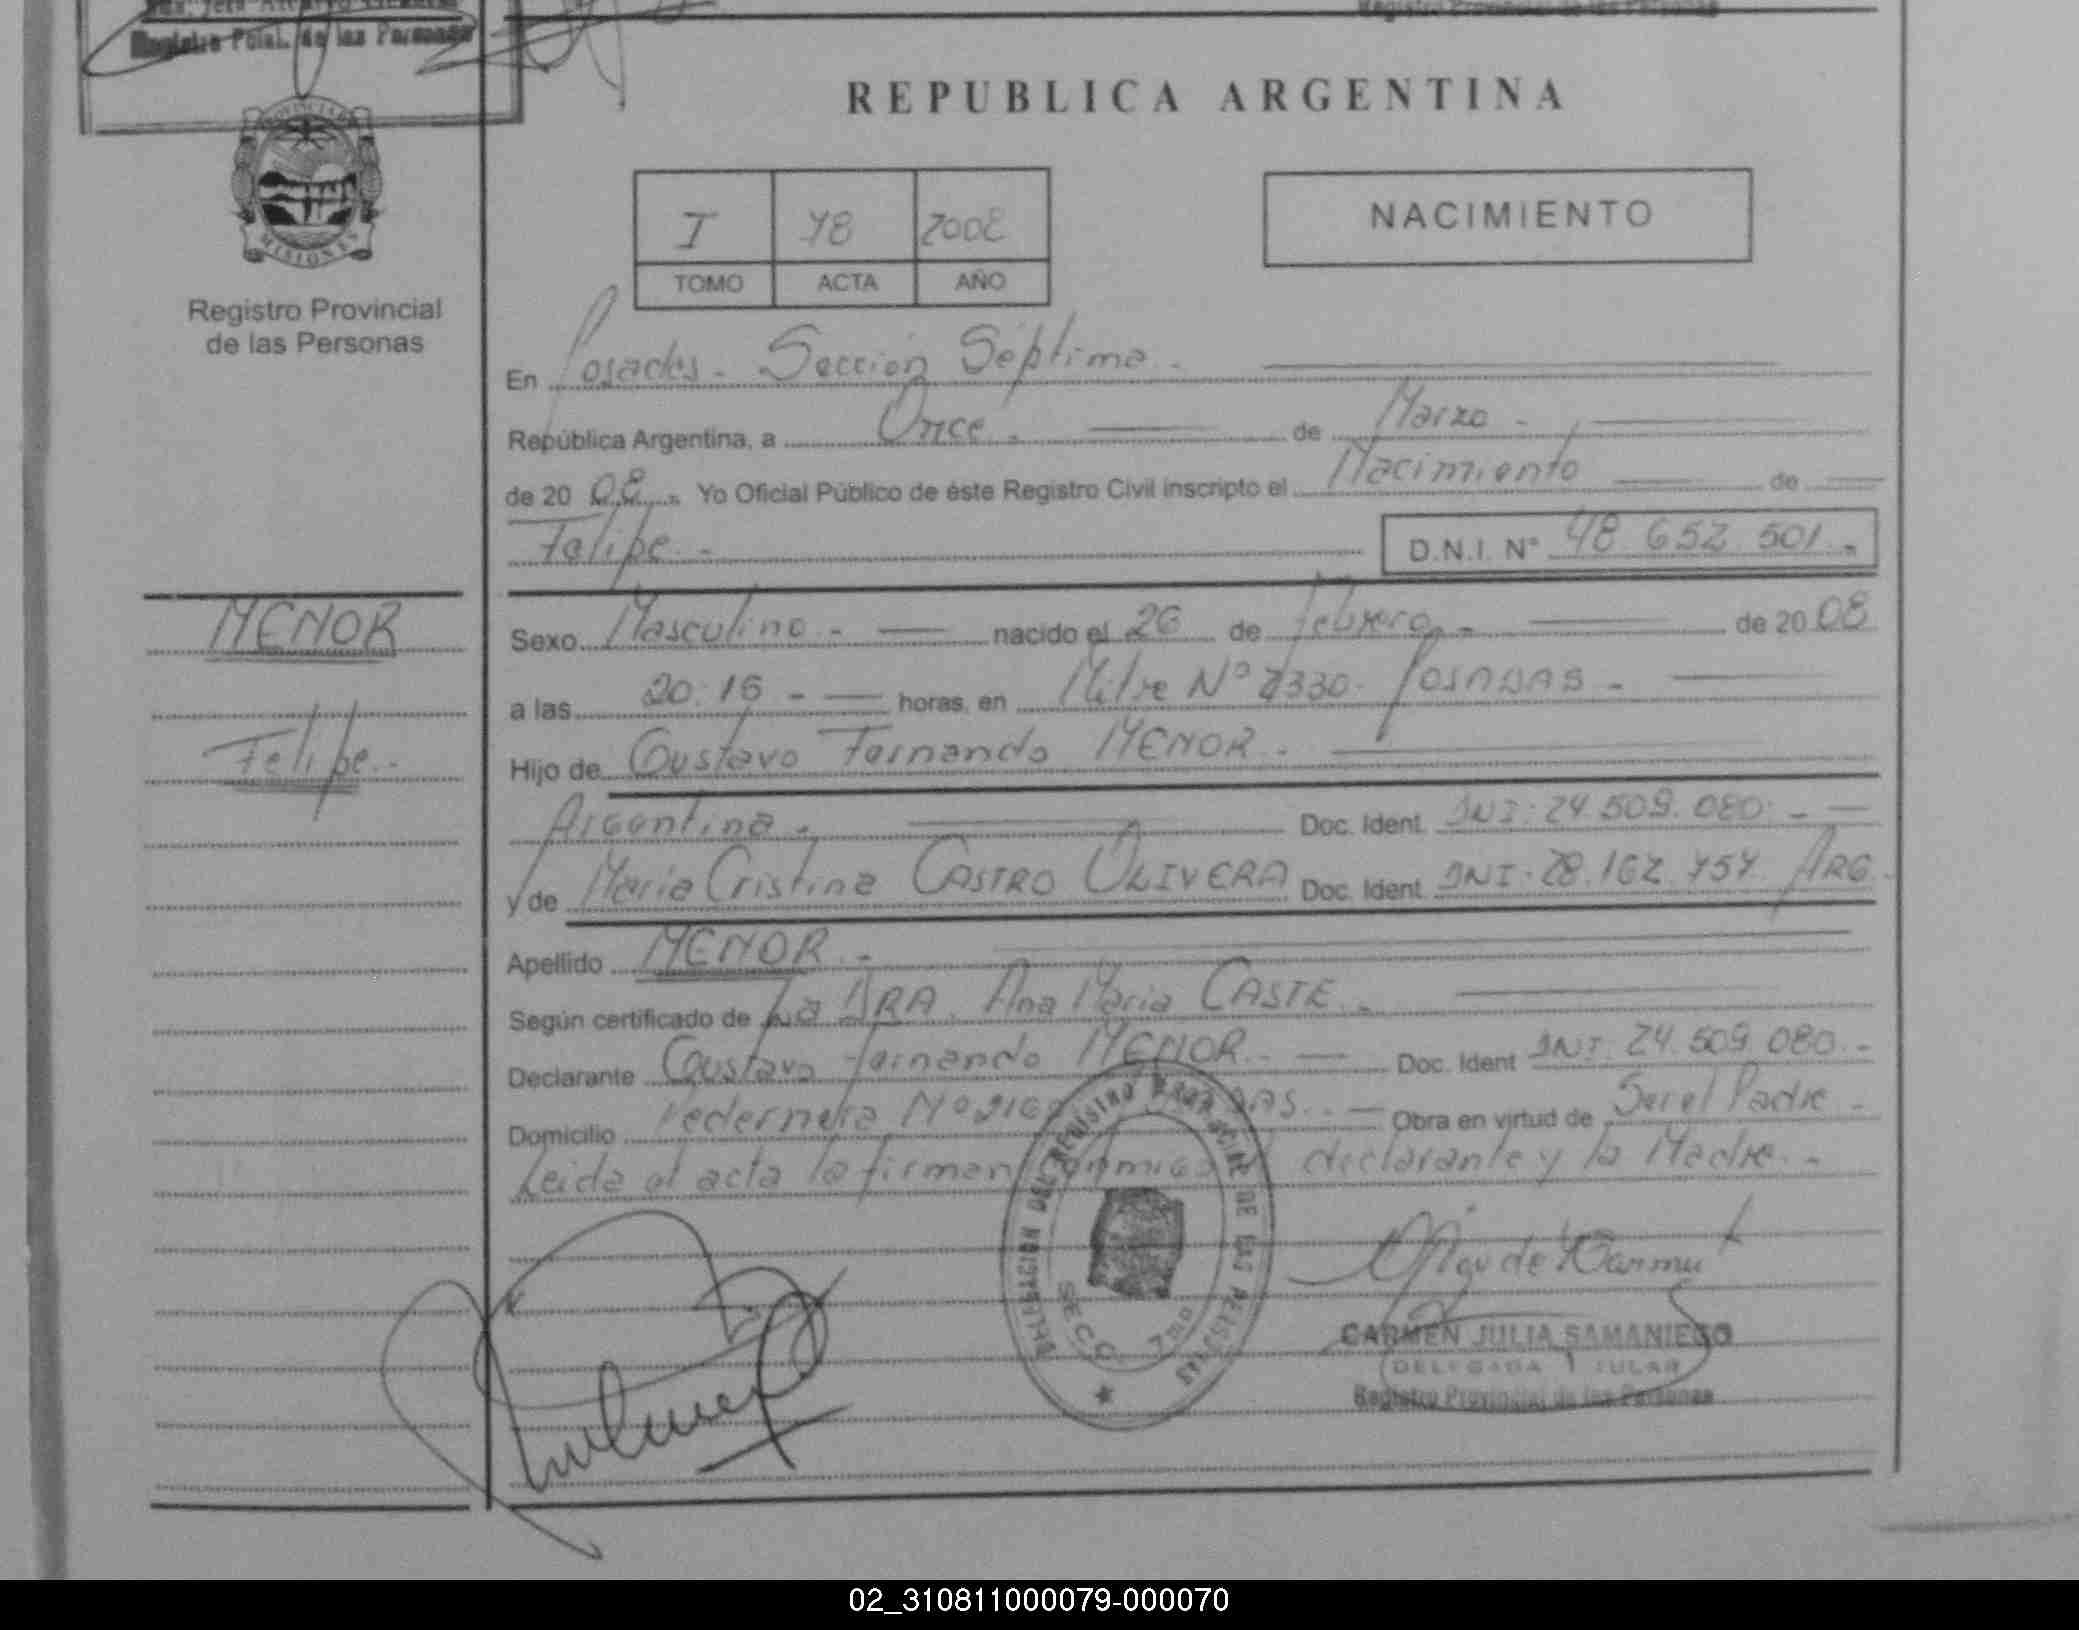 Registro Pcial. de las Personas
Registro Provincial de las Personas
PROVINCIA DE
MISIONES
Registro Provincial
de las Personas
REPUBLICA ARGENTINA
I 78 2008
TOMO ACTA AÑO
NACIMIENTO
En Posadas - Sección Séptima -
República Argentina, a Once - de Marzo -
de 20 08 - Yo Oficial Público de éste Registro Civil inscripto el Nacimiento de
Felipe - D.N.I. N° 48 652 501 -
MENOR
Felipe -
Sexo Masculino - nacido el 26 de febrero - de 20 08
a las 20:15 - horas, en Mitre N° 2330 - POSADAS -
Hijo de Gustavo Fernando MENOR -
Argentina - Doc. Ident. DNI: 24.509.080 -
y de Maria Cristina CASTRO OLIVERA Doc. Ident. DNI. 28.162.757 ARG.
Apellido MENOR -
Según certificado de La DRA. Ana Maria CASTE -
Declarante Gustavo Fernando MENOR - Doc. Ident DNI 24.509 080 -
Domicilio Pedernera N° Obra en virtud de Ser el Padre -
Leida el acta la firman conmigo el declarante y la Madre -
REGISTRO PROVINCIAL DE LAS PERSONAS
SECC. 7ma
CARMEN JULIA SAMANIEGO
DELEGADA TITULAR
Registro Provincial de las Personas
02_310811000079-000070